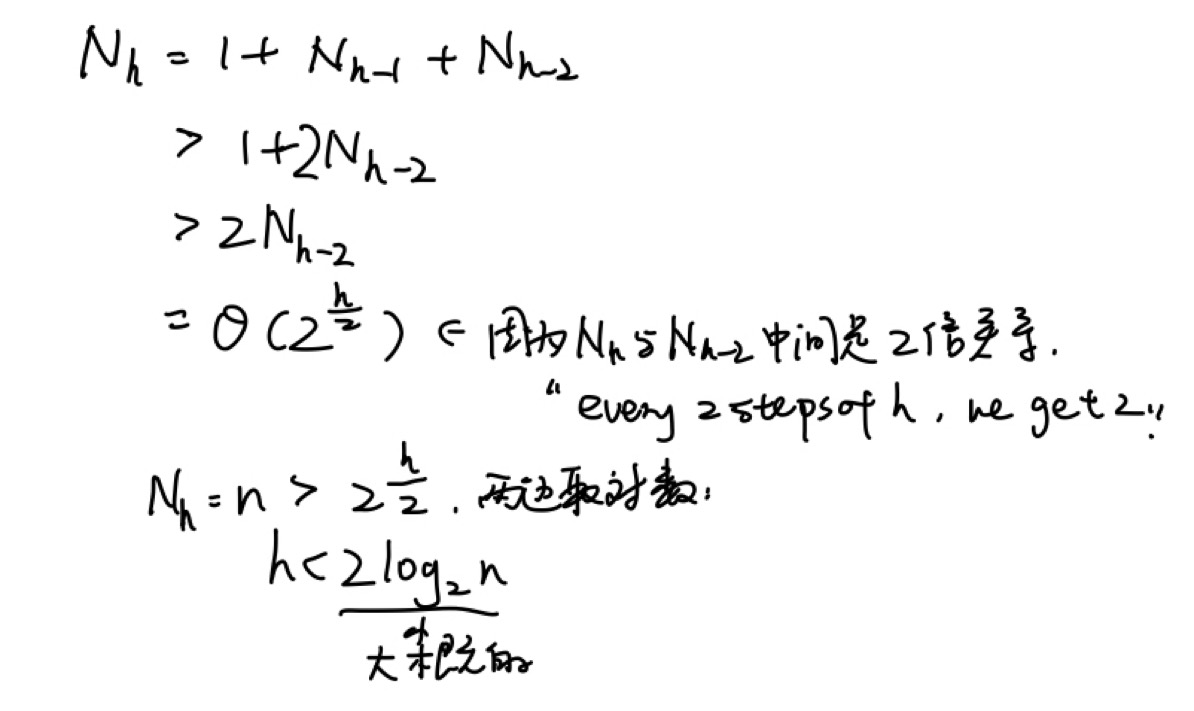 N_h = 1 + N_{h-1} + N_{h-2}
> 1+2N_{h-2}
> 2N_{h-2}
= θ(2^{h/2}) ∈ 因为 N_h 与 N_{h-2} 中间是 2倍关系.
“every 2 steps of h, we get 2”
N_h = n > 2^{h/2}. 两边取对数:
h < 2log_2 n
大概的